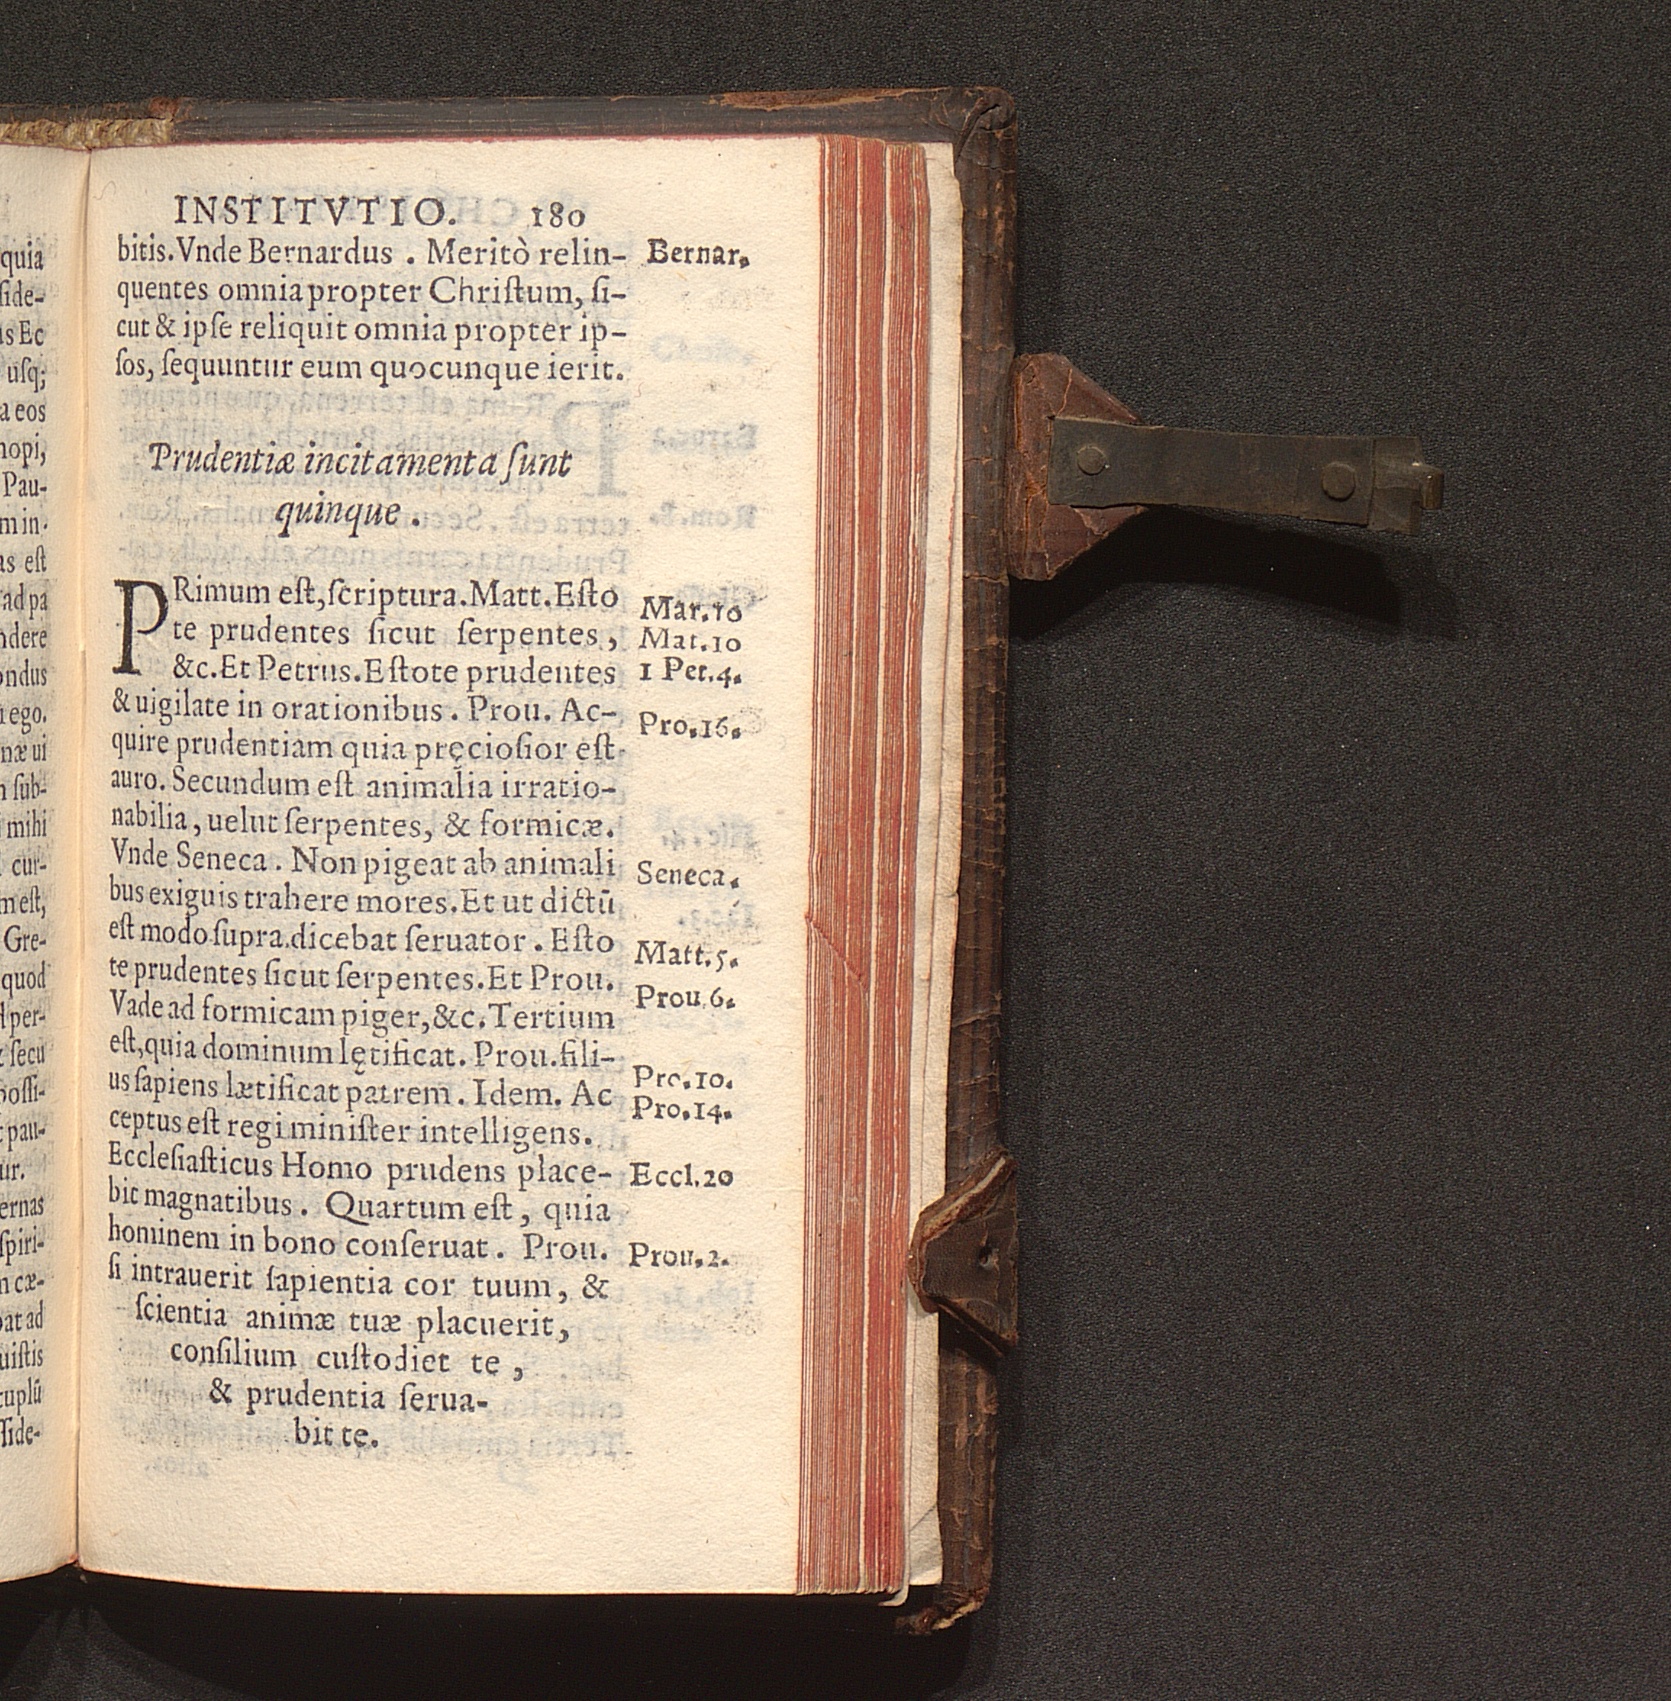 INSTITVTIO. 180
bitis. Vnde Bernardus . Meritò relin- Bernar.
quentes omnia propter Christum, si-
cut & ipse reliquit omnia propter ip-
sos, sequuntur eum quocunque ierit.
Prudentiæ incitamenta sunt
quinque .
PRimum est, scriptura. Matt. Esto Mar.10
te prudentes sicut serpentes , Mat.10
&c. Et Petrus. Estote prudentes 1 Pet.4.
& uigilate in orationibus . Prou. Ac- Pro.16.
quire prudentiam quia pręciosior est
auro. Secundum est animalia irratio-
nabilia, uelut serpentes, & formicæ.
Vnde Seneca . Non pigeat ab animali Seneca.
bus exiguis trahere mores. Et ut dictū
est modo supra dicebat seruator . Esto Matt.5.
te prudentes sicut serpentes. Et Prou. Prou.6.
Vade ad formicam piger, &c. Tertium
est, quia dominum lętificat. Prou. fili-
us sapiens lætificat patrem . Idem. Ac Pro.10.
ceptus est regi minister intelligens. Pro.14.
Ecclesiasticus Homo prudens place- Eccl.20
bit magnatibus . Quartum est, quia
hominem in bono conseruat . Prou. Prou.2.
si intrauerit sapientia cor tuum, &
scientia animæ tuæ placuerit,
consilium custodiet te ,
& prudentia serua-
bit te.
quia
side-
as Ec
usq;
a eos
nopi,
Pau-
m in-
as est
ad pa
ndere
ondus
ego.
næ ui
sub-
mihi
cur-
m est,
Gre-
quod
per-
secū
possi-
pau-
ur.
ernas
spiri-
cæ-
at ad
uistis
cuplū
side-